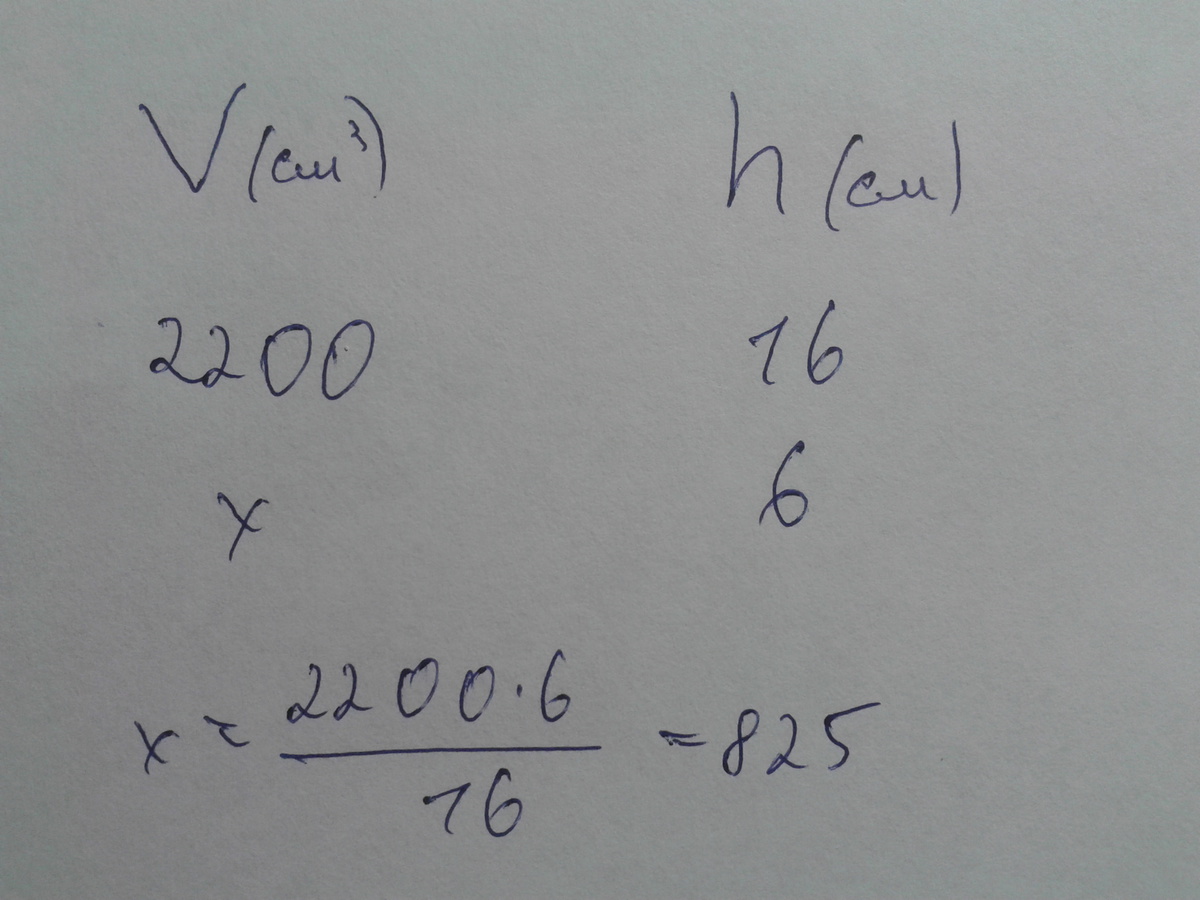 V (см³) h (см)
2200 16
x 6
x = 2200·6 / 16 = 825